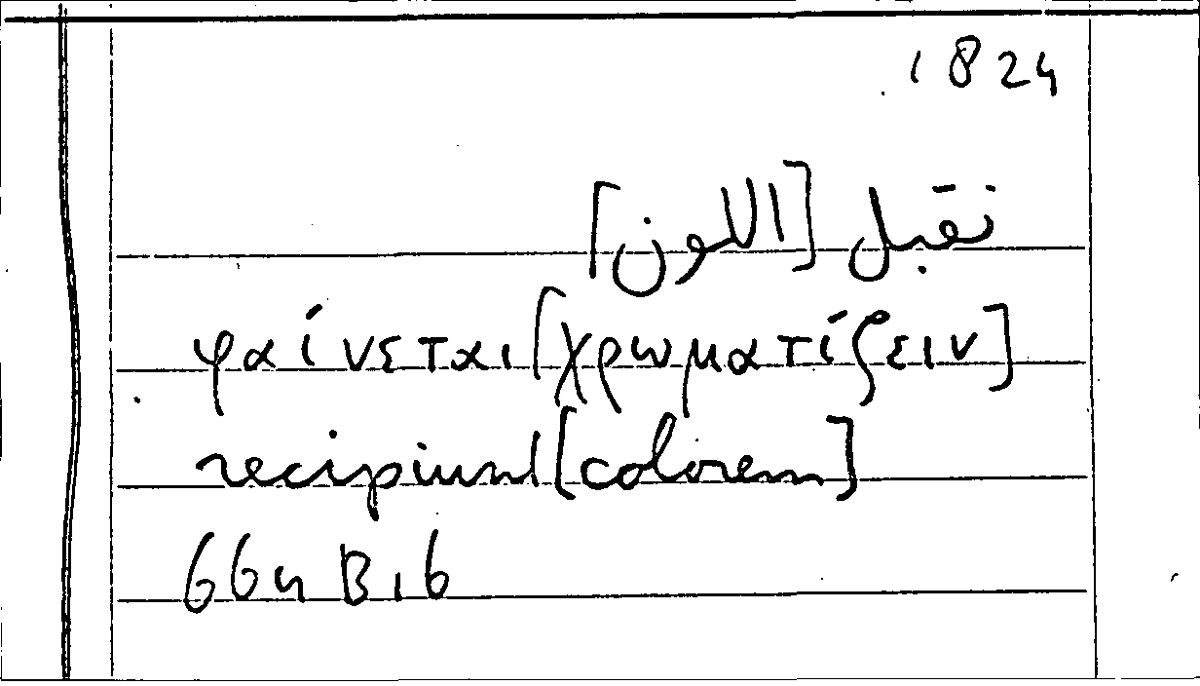 1824
تقبل [اللون]
φαίνεται [χρωματίζειν]
recipiunt [colorem]
664 B 16